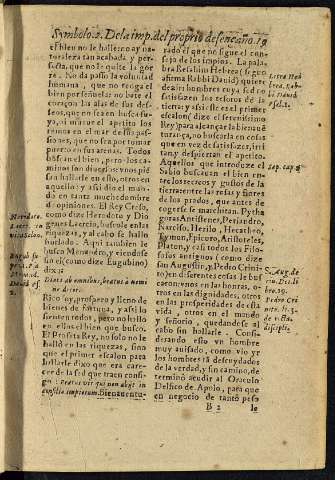 Symbolo.2. De la imp. del proprio desengaño. 19
el bien no le hallemos, ay na-
turaleza tan acabada, y per-
fecta, que no le quite la gor-
ra. No da passo la voluntad
humana, que no tenga el
bien por señuelo: no bate el
coraçon las alas de sus des-
seos, que no sea en busca su-
ya, ni mueue el apetito los
remos en el mar de sus passi-
ones, que no sea por tomar
puerto en sus arenas. Todos
buscan el bien, pero los ca-
minos son diuersos: vnos pié
san hallarle en esto, otros en
aquello: y assi dio el mun-
do en tanta muchedumbre
de opiniones. El Rey Creso,
como dize Herodoto y Dio
genes Laercio, buscole en las
riquezas, y al cabo se hallò
burlado. Aqui tambien le
busca Menandro, y viendose
sin el (como dize Eugubino)
dize:
Dicor ab omnibus, beatus à nemi
ne dicor.
Rico soy, prospero y lleno de
bienes de fortuna, y assi lo
sienten todos, pero no hallo
en ellas el bien que busco.
El Profeta Rey, no solo no le
hallò en las riquezas, sino
que el primer escalon para
llegar a este bien dixo que era
carecer de la sed que traen consi-
go: Beatus vir qui non abijt in
consilio impiorum. Bienauentu-
rado el que no sigue el con-
sejo de los impios. La pala-
bra Reschim Hebrea (segun
afirma Rabbi Dauid) quiere
dezir hombres cuya sed no
satisfazen los tesoros de la
tierra: y assi este es el primer
escalon (dize el serenissimo
Rey) para alcançar la bienauē
turança, no buscarla en cosas
que en vez de satisfazer, irri
tan y despiertan el apetito.
Aquellos que introduze el
Sabio buscauan el bien en-
tre los secreos y gustos de la
tierra:
de los prados, que antes de
cogerse se marchitan. Pytha
goras, Aristenio, Dejanardo,
Narciso, Herilo, Hecateo,
Tymon, Epicuro, Aristoteles,
Platon, y casi todos los Filo-
sofos antiguos (como dize
san Augustin, y Pedro Crini-
to) en diferentes cosas le bus
caron: vnos en las honras, o-
tros en las dignidades, otros
en las prosperidades de esta
vida, otros en el mando
y señorio, quedandose al
cabo sin hallarle. Conside-
rando esto vn hombre
muy auisado, como vio yr
los hombres tā desnudados
de la verdad, y sin camino, de
terminò acudir al Oraculo
Delfico de Apolo, para que
en negocio de tanto peso
B 2 le
Herodoto.
Eugubi
Menand.
Dauid ps.
1.
Letra He
brea, Rabi
Dauid
Psal. 1.
Sap. cap. 2
S. Aug. de
ciu. Dei. li
bro. 19.
Pedro Cri
nit. li. 3.
de
disciplis.